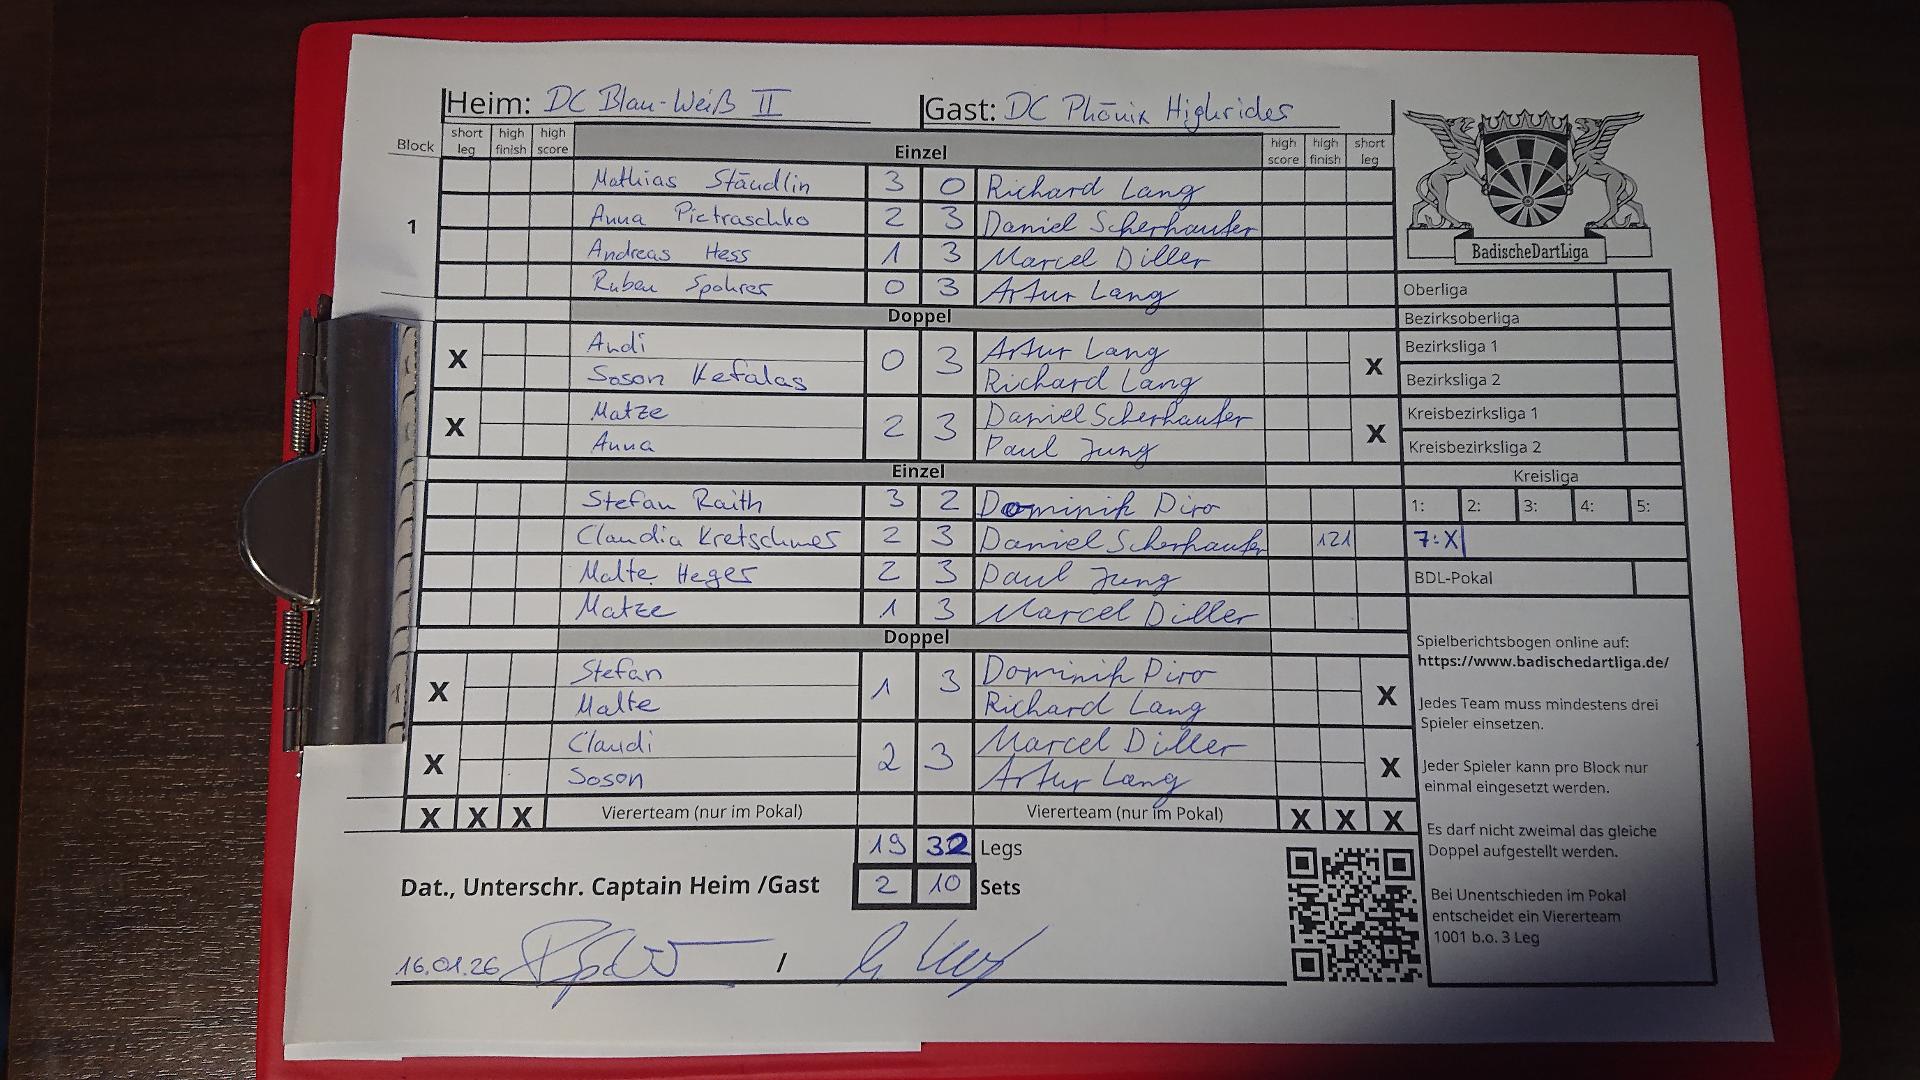 Heim: DC Blau-Weiß II Gast: DC Phönix Highrides
Block short leg high finish high score Einzel high score high finish short leg
1
Mathias Stäudlin 3 0 Richard Lang
Anna Pietraschko 2 3 Daniel Scherhaufer
Andreas Hess 1 3 Marcel Diller
Ruben Spohrer 0 3 Artur Lang
Doppel
X Andi 0 3 Artur Lang X
Soson Kefalas Richard Lang
X Matze 2 3 Daniel Scherhaufer X
Anna Paul Jung
Einzel
Stefan Raith 3 2 Dominik Piro
Claudia Kretschmer 2 3 Daniel Scherhaufer 121
Malte Heger 2 3 Paul Jung
Matze 1 3 Marcel Diller
Doppel
X Stefan 1 3 Dominik Piro X
Malte Richard Lang
X Claudi 2 3 Marcel Diller X
Soson Artur Lang
X X X Viererteam (nur im Pokal) Viererteam (nur im Pokal) X X X
19 32 Legs
Dat., Unterschr. Captain Heim /Gast 2 10 Sets
16.01.26 /
BadischeDartLiga
Oberliga
Bezirksoberliga
Bezirksliga 1
Bezirksliga 2
Kreisbezirksliga 1
Kreisbezirksliga 2
Kreisliga
1: 2: 3: 4: 5:
7: X
BDL-Pokal
Spielberichtsbogen online auf:
https://www.badischedartliga.de/
Jedes Team muss mindestens drei
Spieler einsetzen.
Jeder Spieler kann pro Block nur
einmal eingesetzt werden.
Es darf nicht zweimal das gleiche
Doppel aufgestellt werden.
Bei Unentschieden im Pokal
entscheidet ein Viererteam
1001 b.o. 3 Leg